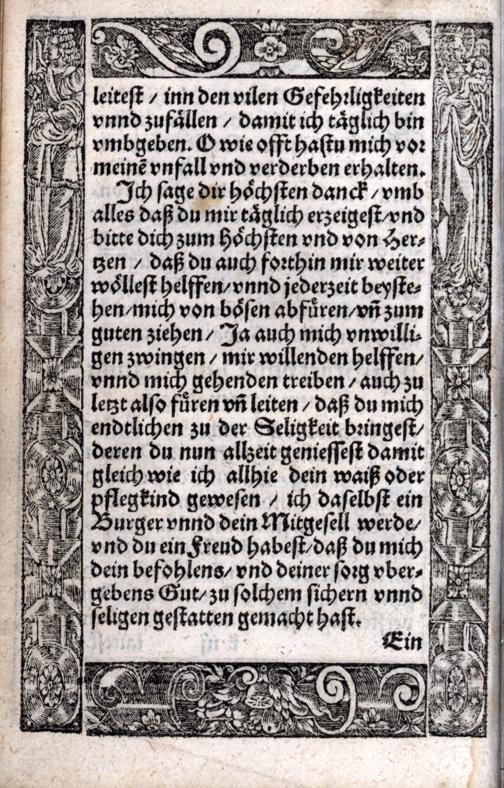 leitest / inn den vilen Gefehrligkeiten
vnnd zufällen / damit ich täglich bin
vmbgeben. O wie offt hastu mich vor
meinē vnfall vnd verderben erhalten.
Ich sage dir höchsten danck / vmb
alles daß du mir täglich erzeigest / vnd
bitte dich zum Höchsten vnd von Her-
tzen / daß du auch forthin mir weiter
wöllest helffen / vnnd jederzeit beyste-
hen / mich von bösen abfüren / vñ zum
guten ziehen / Ja auch mich vnwilli-
gen zwingen / mir willenden helffen /
vnnd mich gehenden treiben / auch zu
letzt also füren vñ leiten / daß du mich
endtlichen zu der Seligkeit bringest /
deren du nun allzeit geniessest damit
gleich wie ich allhie dein waiß oder
pflegkind gewesen / ich daselbst ein
Burger vnnd dein Mitgesell werde /
vnd du ein Freud habest / daß du mich
dein befohlens / vnd deiner sorg vber-
gebens Gut / zu solchem sichern vnnd
seligen gestatten gemacht hast.
Ein